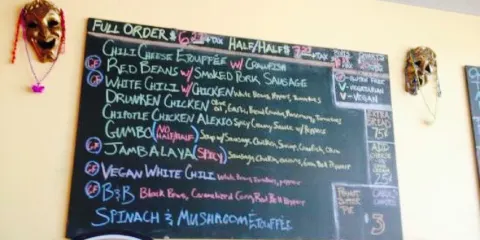 FULL ORDER $6 + TAX HALF/HALF $7
CHILI CHEESE ETOUFFÉE W/ CRAWFISH
GF RED BEANS W/ SMOKED PORK SAUSAGE
GF WHITE CHILI W/ CHICKEN White Beans, Pepper, Tomatoes
DRUNKEN CHICKEN Olive oil, Garlic, Rosemary, Tomatoes
CHIPOTLE CHICKEN ALEXIO Spicy Creamy Sauce w/ Peppers
GUMBO (NO HALF/HALF) Soup w/ Sausage, Chicken, Shrimp, Crawfish, Okra
GF JAMBALAYA (SPICY) Sausage, Chicken, Bell Pepper
GF VEGAN WHITE CHILI White Beans, Tomatoes, Pepper
GF B&B Black Beans, Caramelized Corn, Red Bell Pepper
SPINACH & MUSHROOM ETOUFFÉE
GLUTEN FREE
V - VEGETARIAN
V - VEGAN
EXTRA
BREAD
75¢
ADD
CHEESE
25¢
PEANUT
BUTTER
PIE
$3